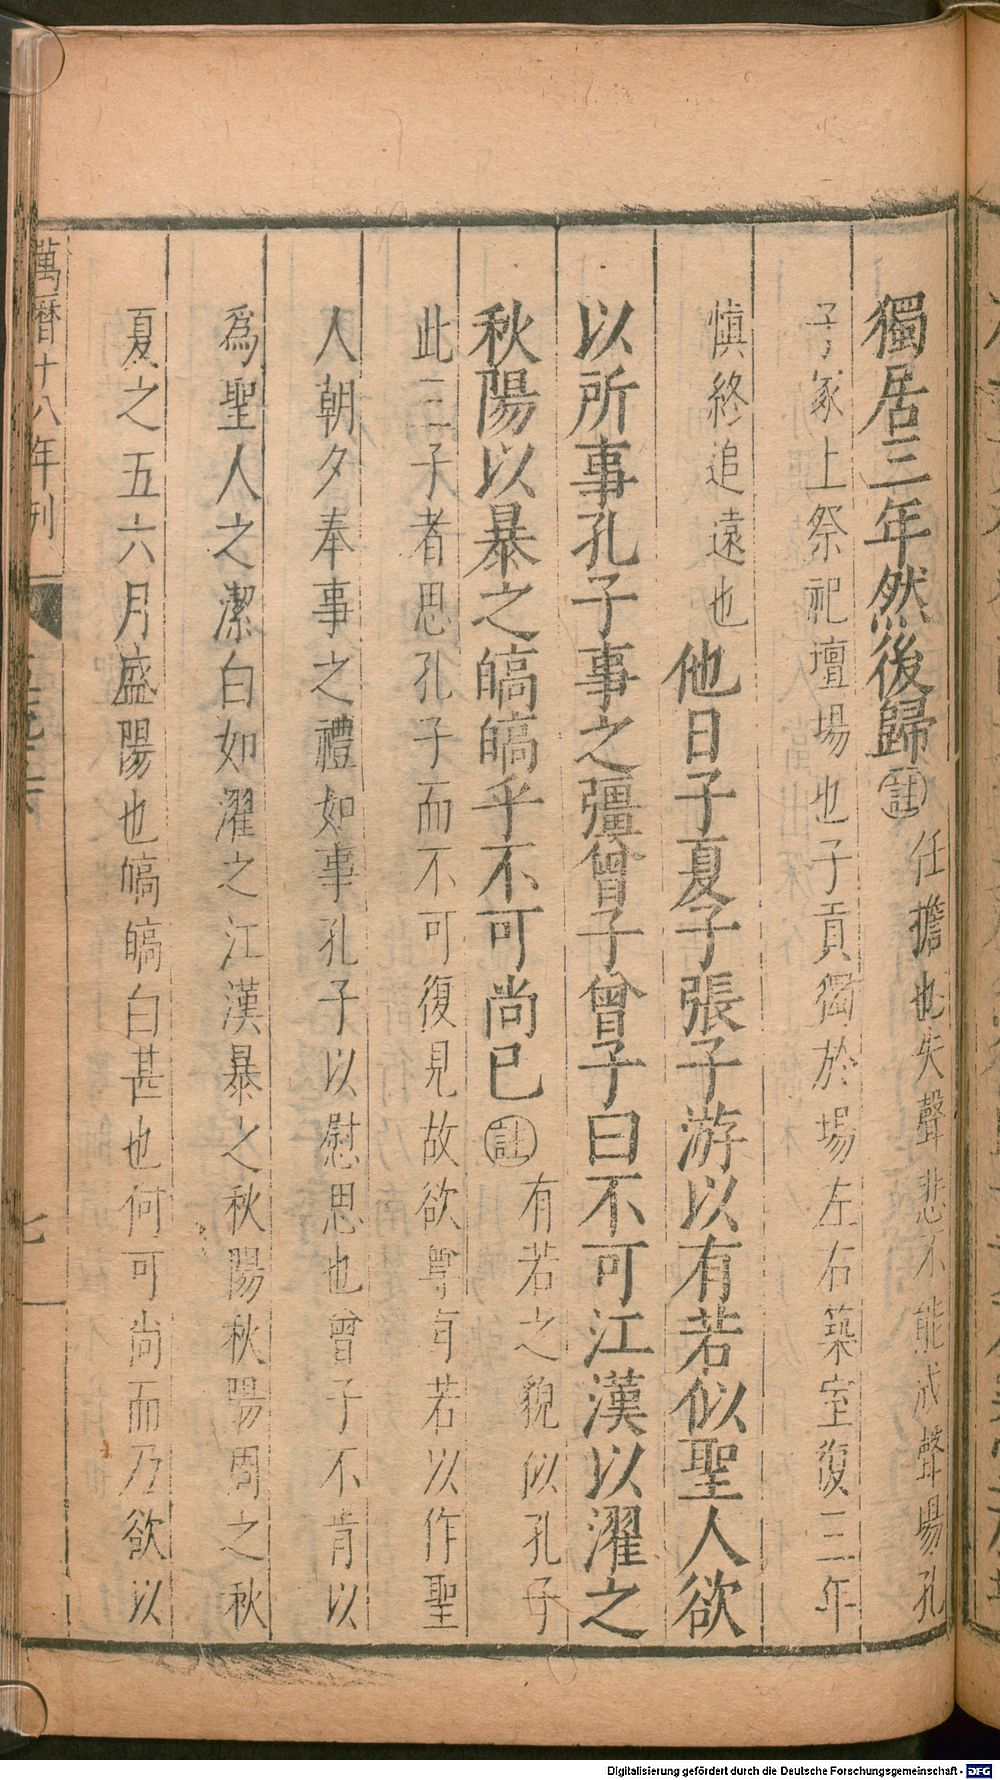 獨居三年然後歸㊟任擔也失聲悲不能成聲場孔
子冢上祭祀壇場也子貢獨於場左右築室復三年
慎終追遠也他日子夏子張子游以有若似聖人欲
以所事孔子事之彊曾子曾子曰不可江漢以濯之
秋陽以暴之皜皜乎不可尚已註有若之貌似孔子
此三子者思孔子而不可復見故欲尊有若以作聖
人朝夕奉事之禮如事孔子以慰思也曾子不肯以
爲聖人之潔白如濯之江漢暴之秋陽秋陽周之秋
夏之五六月盛陽也皜皜白甚也何可尚而乃欲以
萬曆十八年刊
七
Digitalisierung gefördert durch die Deutsche Forschungsgemeinschaft - DFG